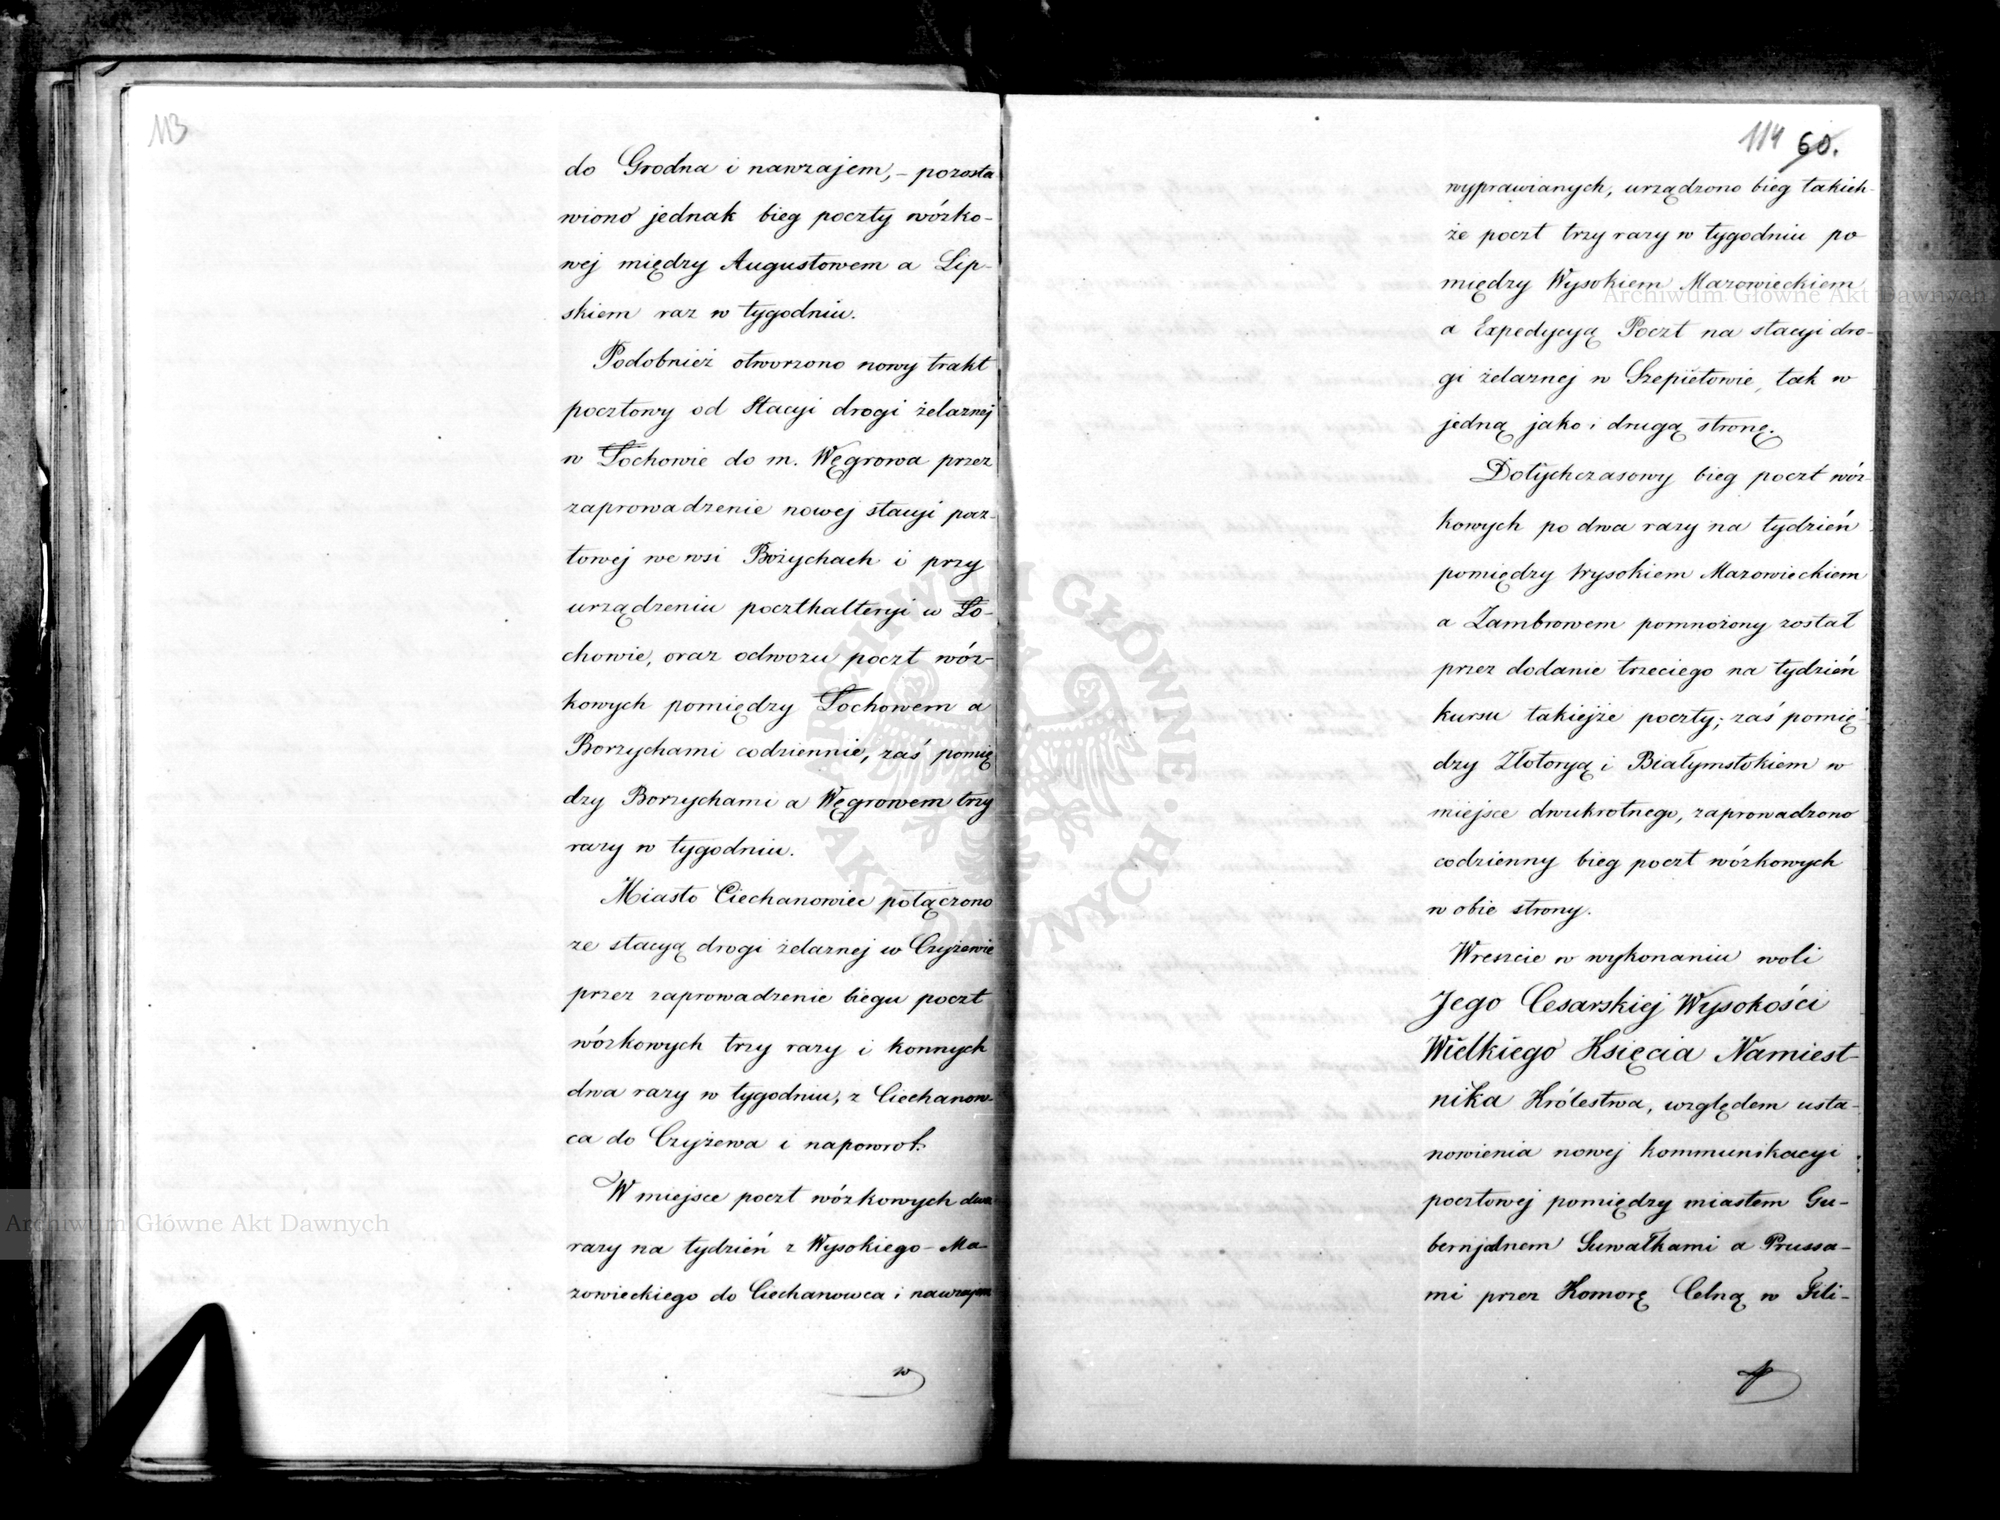 113
do Grodna i nawzajem, – pozosta
wiono jednak bieg poczty wózko-
wej między Augustowem a Lip-
skiem raz w tygodniu.
Podobnież otworzono nowy trakt
pocztowy od Stacyi drogi żelaznej
w Łochowie do m. Węgrowa przez
zaprowadzenie nowej stacyi pocz-
towej we wsi Bożychach i przy
urządzeniu poczthalteryi w Ło-
chowie, oraz odwozu poczt wóz-
kowych pomiędzy Łochowem a
Borzychami codziennie, zaś pomię
dzy Borzychami a Węgrowem trzy
razy w tygodniu.
Miasto Ciechanowiec połączono
ze stacyą drogi żelaznej w Czyżewie
przez zaprowadzenie biegu poczt
wózkowych trzy razy i konnych
dwa razy w tygodniu, z Ciechanow-
ca do Czyżewa i napowrot.
W miejsce poczt wózkowych dwa
razy na tydzień z Wysokiego-Ma-
zowieckiego do Ciechanowca i nawzajem
w
114 60.
wyprawianych, urządzono bieg takich-
że poczt trzy razy w tygodniu po
między Wysokiem Mazowieckiem
a Expedycyą Poczt na stacyi dro-
gi żelaznej w Szepietowie, tak w
jedną jako i drugą stronę.
Dotychczasowy bieg poczt wóz-
kowych po dwa razy na tydzień
pomiędzy Wysokiem Mazowieckiem
a Zambrowem pomnożony został
przez dodanie trzeciego na tydzień
kursu takiejże poczty; zaś pomię-
dzy Złotoryą i Białymstokiem w
miejsce dwukrotnego, zaprowadzono
codzienny bieg poczt wózkowych
w obie strony.
Wreszcie w wykonaniu woli
Jego Cesarskiej Wysokości
Wielkiego Księcia Namiest-
nika Królestwa, względem usta-
nowienia nowej kommunikacyi
pocztowej pomiędzy miastem Gu-
bernjalnem Suwałkami a Prussa-
mi przez Komorę Celną w Fili-
Archiwum Główne Akt Dawnych
Archiwum Główne Akt Dawnych
ARCHIWUM GŁÓWNE AKT DAWNYCH